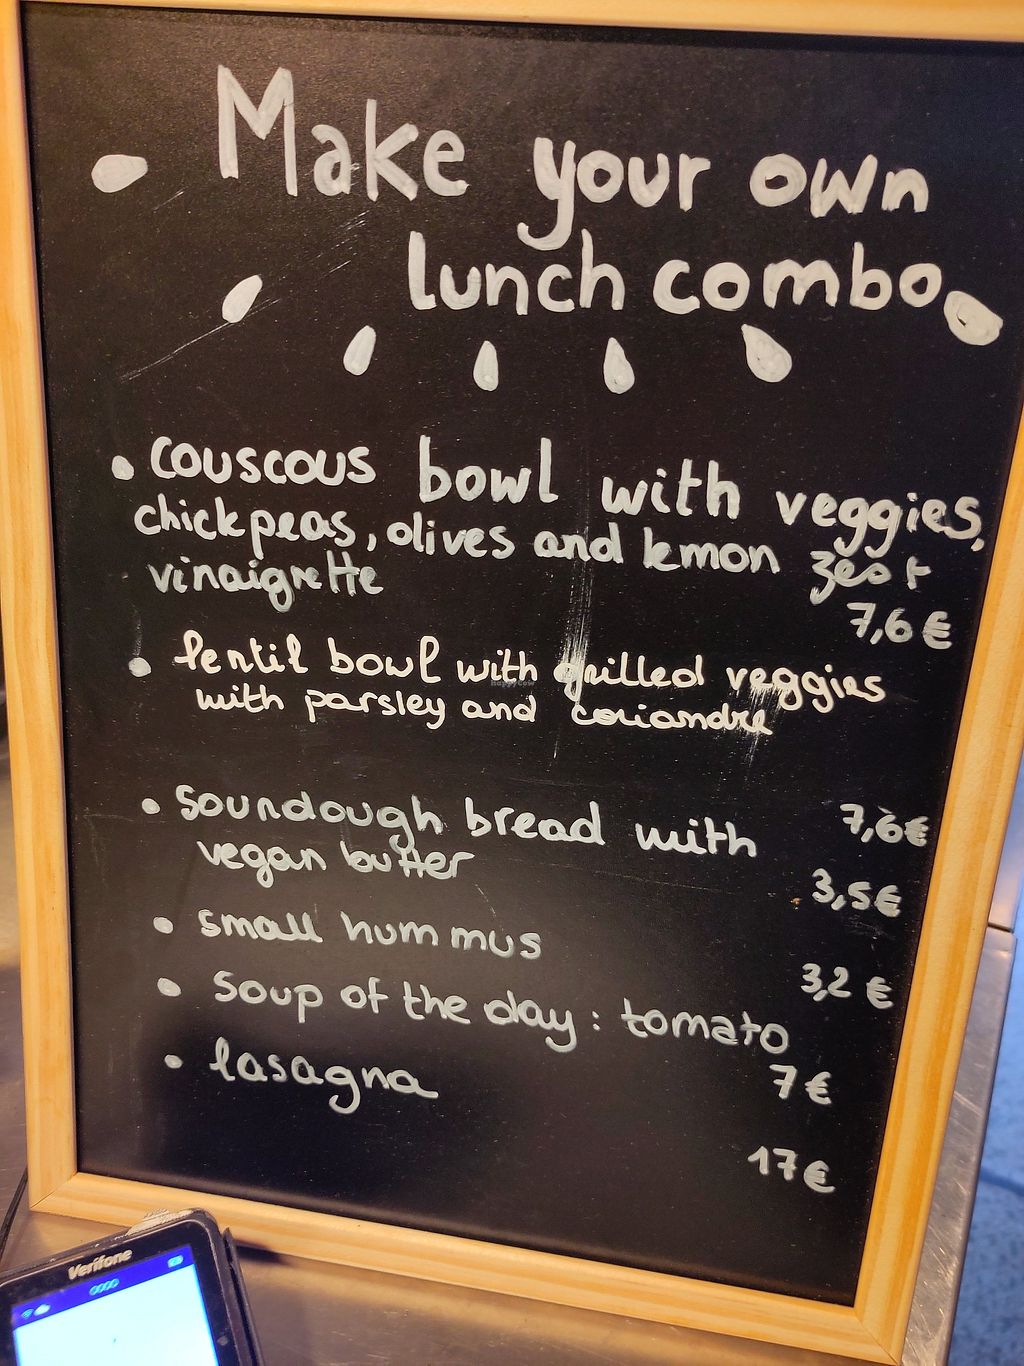 Make your own
lunch combo
• couscous bowl with veggies,
chickpeas, olives and lemon zest
vinaigrette
7,6 €
• lentil bowl with grilled veggies
with parsley and coriandre
7,6€
• sourdough bread with
vegan butter
3,5€
• small hummus
3,2 €
• soup of the day : tomato
7 €
• lasagna
17 €
HappyCow
Verifone